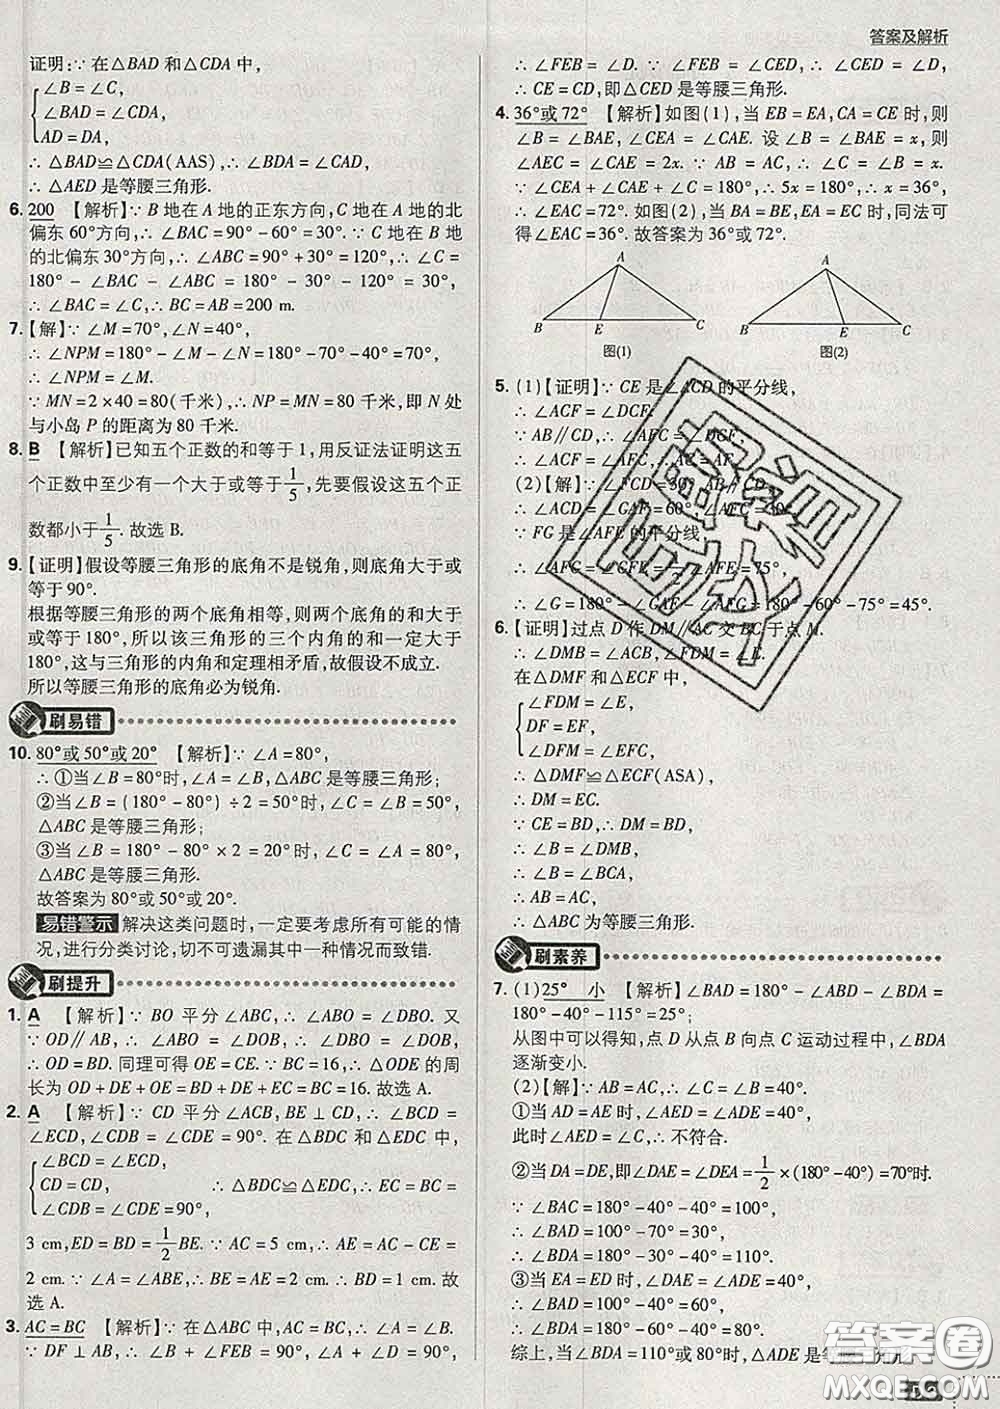 答案及解析
证明:∵ 在△BAD 和△CDA 中,
∠B=∠C,
∠BAD=∠CDA,
AD=DA,
∴ △BAD≌△CDA(AAS),∴ ∠BDA=∠CAD,
∴ △AED 是等腰三角形.
6. 200 【解析】∵ B 地在 A 地的正东方向,C 地在 A 地的北
偏东 60°方向,∴ ∠BAC=90°-60°=30°.∵ C 地在 B 地
的北偏东 30°方向,∴ ∠ABC=90°+30°=120°,∴ ∠C=
180°-∠BAC-∠ABC=180°-30°-120°=30°,
∴ ∠BAC=∠C,∴ BC=AB=200 m.
7.【解】∵ ∠M=70°,∠N=40°,
∴ ∠NPM=180°-∠M-∠N=180°-70°-40°=70°,
∴ ∠NPM=∠M.
∵ MN=2×40=80(千米),∴ NP=MN=80 千米,即 N 处
与小岛 P 的距离为 80 千米.
8. B 【解析】已知五个正数的和等于 1,用反证法证明这五
个正数中至少有一个大于或等于1/5,先要假设这五个正
数都小于1/5.故选 B.
9.【证明】假设等腰三角形的底角不是锐角,则底角大于或
等于 90°.
根据等腰三角形的两个底角相等,则两个底角的和大于
或等于 180°,所以该三角形的三个内角的和一定大于
180°,这与三角形的内角和定理相矛盾,故假设不成立.
所以等腰三角形的底角必为锐角.
刷易错
10. 80°或 50°或 20° 【解析】∵ ∠A=80°,
∴ ①当∠B=80°时,∠A=∠B,△ABC 是等腰三角形;
②当∠B=(180°-80°)÷2=50°时,∠C=∠B=50°,
△ABC 是等腰三角形;
③当∠B=180°-80°×2=20°时,∠C=∠A=80°,
△ABC 是等腰三角形.
故答案为 80°或 50°或 20°.
易错警示 解决这类问题时,一定要考虑所有可能的情
况,进行分类讨论,切不可遗漏其中一种情况而致错.
刷提升
1. A 【解析】∵ BO 平分∠ABC,∴ ∠ABO=∠DBO. 又
∵ OD∥AB,∴ ∠ABO=∠DOB,∴ ∠DBO=∠DOB,
∴ OD=BD. 同理可得 OE=CE. ∵ BC=16,∴ △ODE 的周
长为 OD+DE+OE=BD+DE+CE=BC=16. 故选 A.
2. A 【解析】∵ CD 平分∠ACB,BE⊥CD,∴ ∠BCD=
∠ECD,∠CDB=∠CDE=90°. 在△BDC 和△EDC 中,
∠BCD=∠ECD,
CD=CD,
∠CDB=∠CDE=90°,
∴ △BDC≌△EDC,∴ EC=BC=
3 cm,ED=BD=1/2BE. ∵ AC=5 cm,∴ AE=AC-CE=
2 cm. ∵ ∠A=∠ABE,∴ BE=AE=2 cm. ∴ BD=1 cm. 故
选 A.
3. AC=BC 【解析】∵ 在△ABC 中,AC=BC,∴ ∠A=∠B.
∵ DF⊥AB,∴ ∠B+∠FEB=90°,∠A+∠D=90°,
∴ ∠FEB=∠D. ∵ ∠FEB=∠CED,∴ ∠CED=∠D,
∴ CE=CD,即△CED 是等腰三角形.
4. 36°或 72° 【解析】如图(1),当 EB=EA,CA=CE 时,则
∠B=∠BAE,∠CEA=∠CAE. 设∠B=∠BAE=x,则
∠AEC=∠CAE=2x. ∵ AB=AC,∴ ∠C=∠B=x.
∵ ∠CEA+∠CAE+∠C=180°,∴ 5x=180°,∴ x=36°,
∴ ∠EAC=72°. 如图(2),当 BA=BE,EA=EC 时,同法可
得∠EAC=36°. 故答案为 36°或 72°.
A B E C 图(1)
A B E C 图(2)
5. (1)【证明】∵ CE 是∠ACD 的平分线,
∴ ∠ACF=∠DCF.
∵ AB∥CD,∴ ∠AFC=∠DCF,
∴ ∠ACF=∠AFC,∴ AC=AF.
(2)【解】∵ ∠FCD=30°,AB∥CD,
∴ ∠ACD=∠GAF=60°,∠AFC=30°.
∵ FG 是∠AFE 的平分线,
∴ ∠AFG=∠GFE=1/2∠AFE=75°,
∴ ∠G=180°-∠GAF-∠AFG=180°-60°-75°=45°.
6.【证明】过点 D 作 DM∥AC 交 BC 于点 M.
∴ ∠DMB=∠ACB,∠FDM=∠E.
在△DMF 和△ECF 中,
∠FDM=∠E,
DF=EF,
∠DFM=∠EFC,
∴ △DMF≌△ECF(ASA),
∴ DM=EC.
∵ CE=BD,∴ DM=BD,
∴ ∠B=∠DMB,
∴ ∠B=∠ACB,
∴ AB=AC,
∴ △ABC 为等腰三角形.
刷素养
7. (1)25° 小 【解析】∠BAD=180°-∠ABD-∠BDA=
180°-40°-115°=25°;
从图中可以得知,点 D 从点 B 向点 C 运动过程中,∠BDA
逐渐变小.
(2)【解】∵ AB=AC,∴ ∠C=∠B=40°.
①当 AD=AE 时,∠AED=∠ADE=40°,
此时∠AED=∠C,∴ 不符合.
②当 DA=DE,即∠DAE=∠DEA=1/2×(180°-40°)=70°时.
∵ ∠BAC=180°-40°-40°=100°,
∴ ∠BAD=100°-70°=30°.
∴ ∠BDA=180°-30°-40°=110°.
③当 EA=ED 时,∠DAE=∠ADE=40°,
∴ ∠BAD=100°-40°=60°,
∴ ∠BDA=180°-60°-40°=80°.
综上,当∠BDA=110°或 80°时,△ADE 是等腰三角形.
答案圈
MXQE.COM